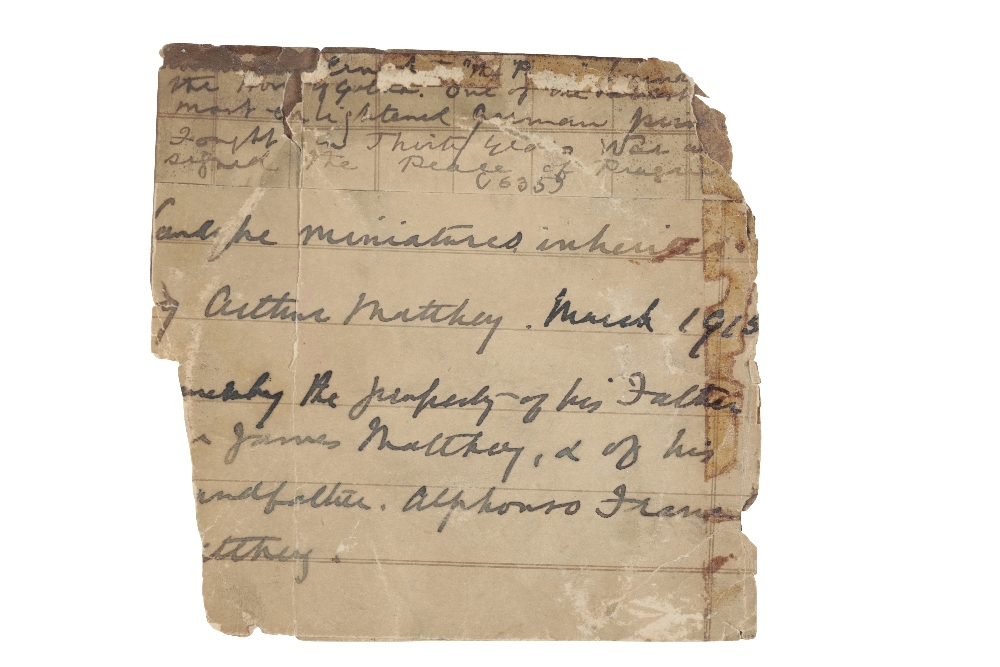 Ernest "the
the House of Gotha. One of the
most enlightened German
Fought in Thirty Years War
signed the Peace of Prague
(1635)
miniatures inherited
Arthur Matthey. March 1913
the property of his Father
James Matthey, & of his
andfather. Alphonso
tthey.